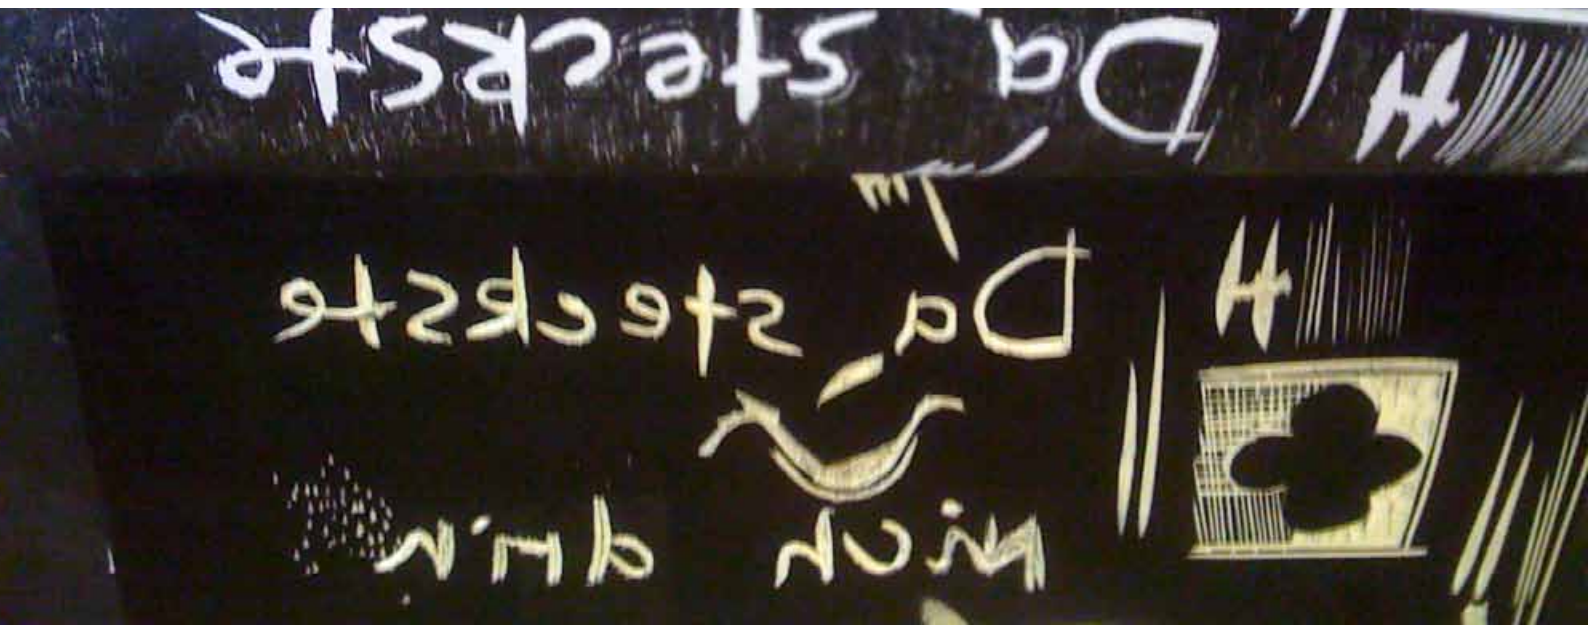 H Da steckste
H Da steckste
nich drin